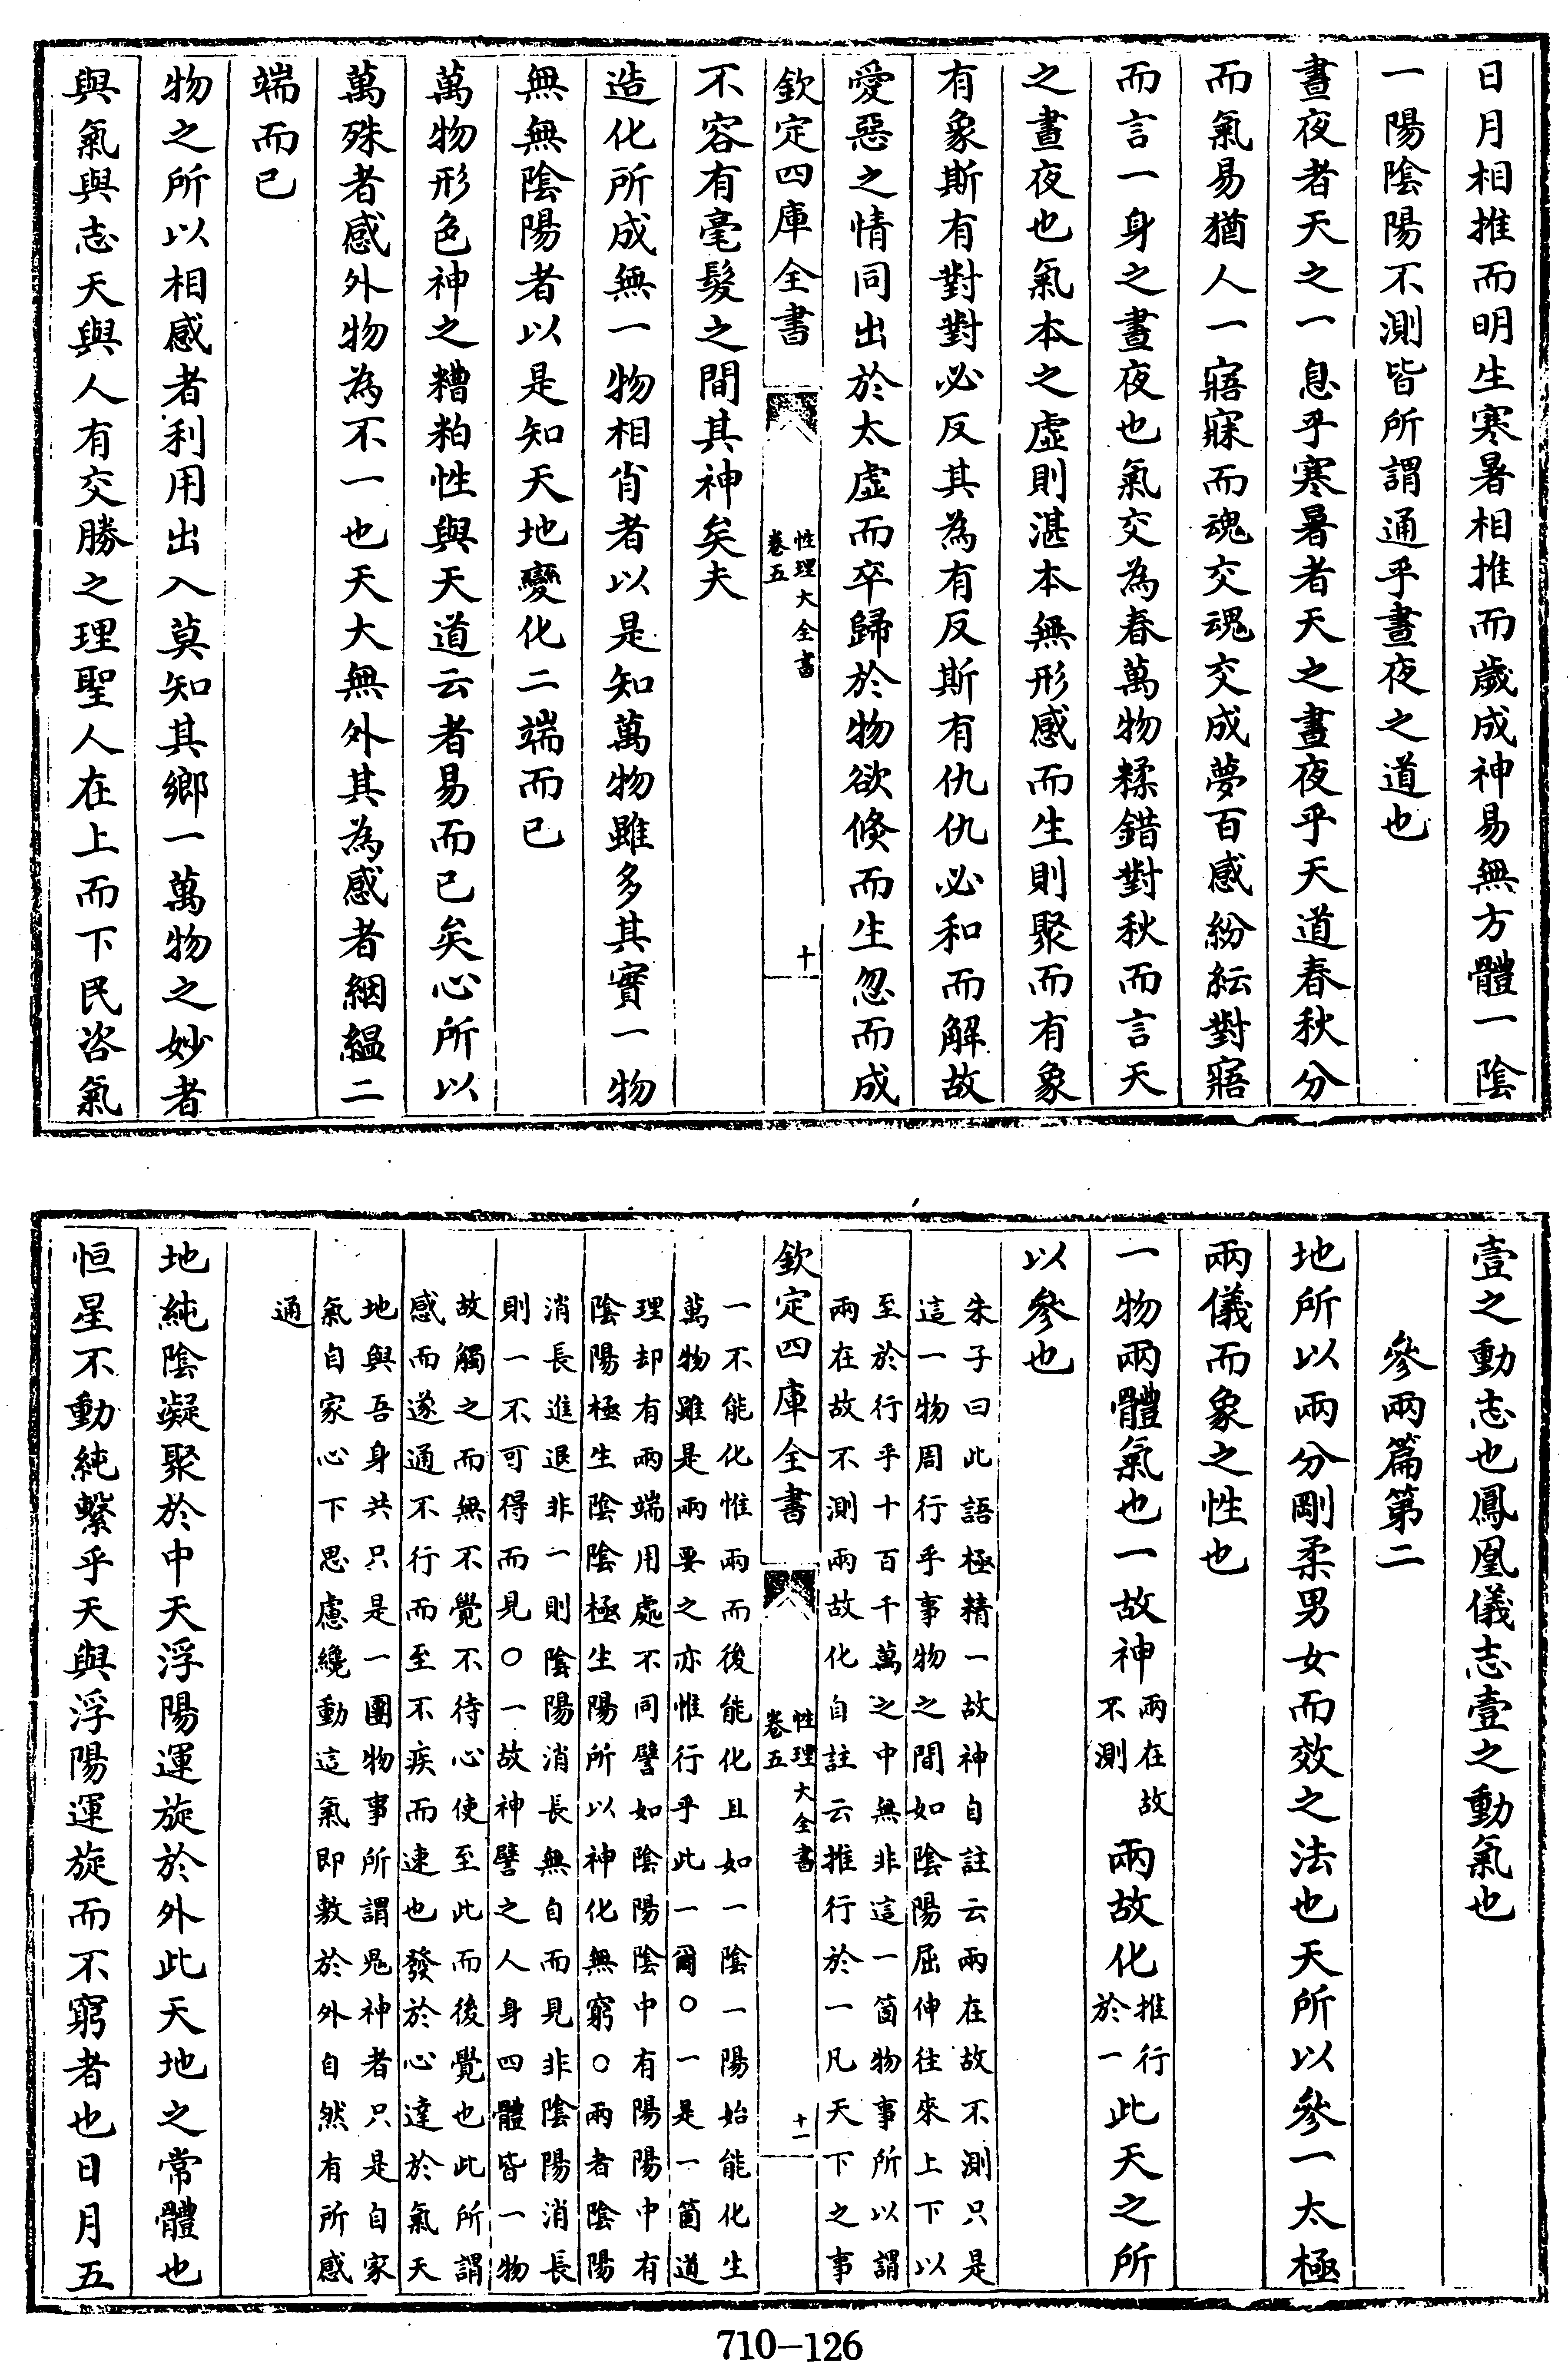 日月相推而明生寒暑相推而歲成神易無方體一陰
一陽陰陽不測皆所謂通乎晝夜之道也
晝夜者天之一息乎寒暑者天之晝夜乎天道春秋分
而氣易猶人一寤寐而魂交魂交成夢百感紛紜對寤
而言一身之晝夜也氣交為春萬物糅錯對秋而言天
之晝夜也氣本之虛則湛本無形感而生則聚而有象
有象斯有對對必反其為有反斯有仇仇必和而解故
愛惡之情同出於太虛而卒歸於物欲倐而生忽而成
欽定四庫全書
性理大全書
卷五
十
不容有毫髮之間其神矣夫
造化所成無一物相肖者以是知萬物雖多其實一物
無無陰陽者以是知天地變化二端而已
萬物形色神之糟粕性與天道云者易而已矣心所以
萬殊者感外物為不一也天大無外其為感者絪縕二
端而已
物之所以相感者利用出入莫知其鄉一萬物之妙者
與氣與志天與人有交勝之理聖人在上而下民咨氣
壹之動志也鳳凰儀志壹之動氣也
參兩篇第二
地所以兩分剛柔男女而效之法也天所以參一太極
兩儀而象之性也
一物兩體氣也一故神兩在故不測兩故化推行於一此天之所
以參也
朱子曰此語極精一故神自註云兩在故不測只是
這一物周行乎事物之間如陰陽屈伸往來上下以
至於行乎十百千萬之中無非這一箇物事所以謂
兩在故不測兩故化自註云推行於一凡天下之事
欽定四庫全書
性理大全書
卷五
十一
一不能化惟兩而後能化且如一陰一陽始能化生
萬物雖是兩要之亦惟行乎此一爾○一是一箇道
理却有兩端用處不同譬如陰陽陰中有陽陽中有
陰陽極生陰陰極生陽所以神化無窮○兩者陰陽
消長進退非一則陰陽消長無自而見非陰陽消長
則一不可得而見○一故神譬之人身四體皆一物
故觸之而無不覺不待心使至此而後覺也此所謂
感而遂通不行而至不疾而速也發於心達於氣天
地與吾身共只是一團物事所謂鬼神者只是自家
氣自家心下思慮纔動這氣即敷於外自然有所感
通
地純陰凝聚於中天浮陽運旋於外此天地之常體也
恒星不動純繫乎天與浮陽運旋而不窮者也日月五
710-126